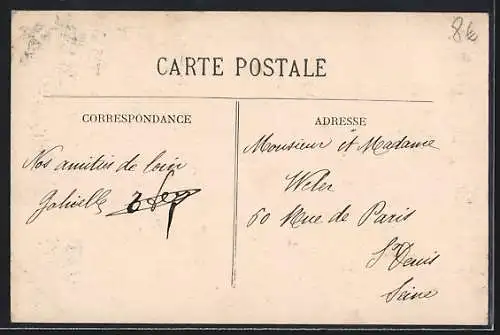 CARTE POSTALE
CORRESPONDANCE
Nos amitiés de loin
Gabielle
ADRESSE
Monsieur et Madame
Weler
60 Rue de Paris
St Denis
Seine